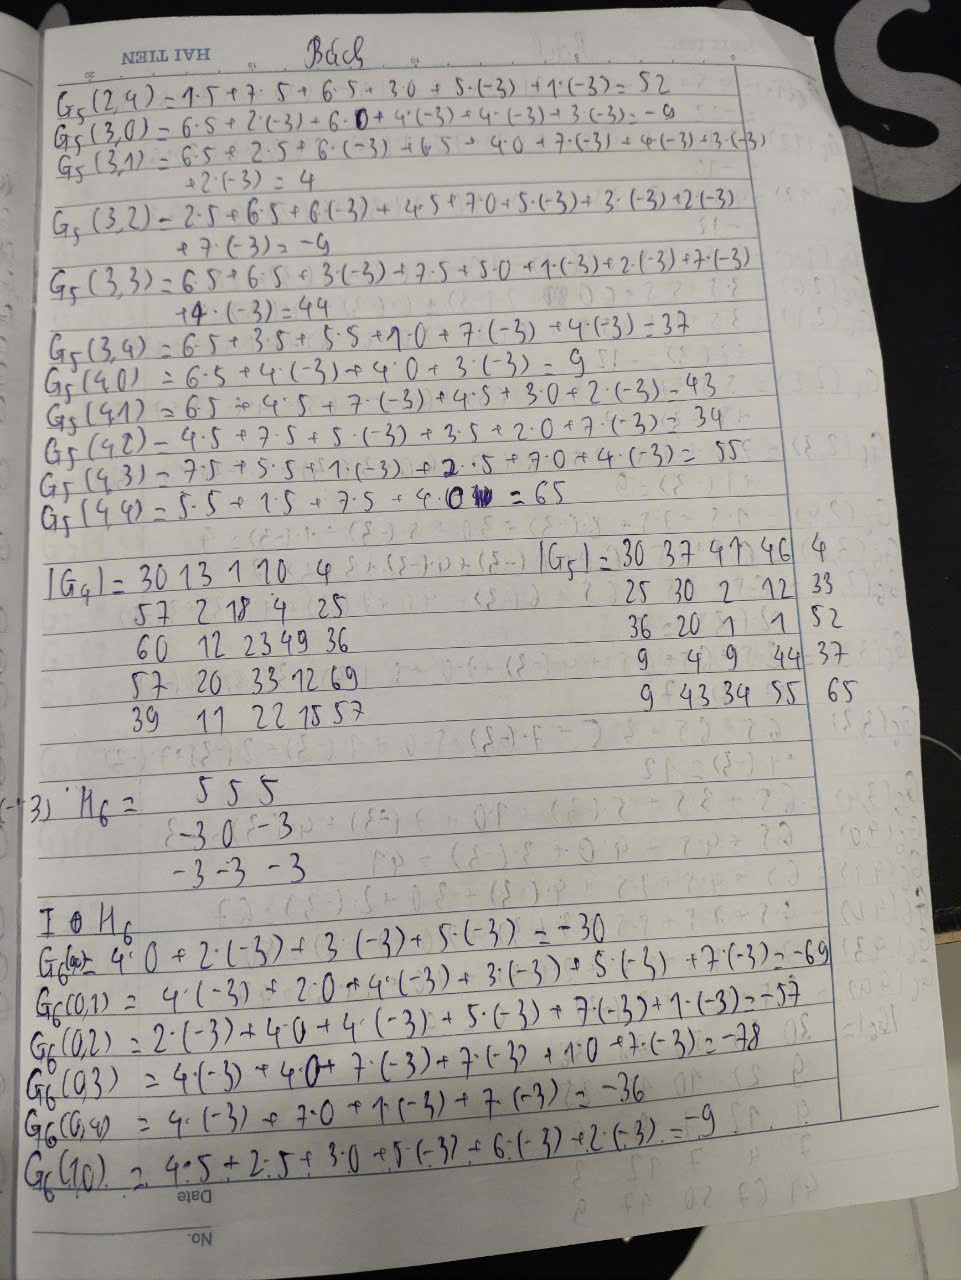 HAI TIEN
Bách
G5(2,4) = 1·5 + 7·5 + 6·5 + 3·0 + 5·(-3) + 1·(-3) = 52
G5(3,0) = 6·5 + 2·(-3) + 6·0 + 4·(-3) + 4·(-3) + 3·(-3) = -9
G5(3,1) = 6·5 + 2·5 + 6·(-3) + 6·5 + 4·0 + 7·(-3) + 4·(-3) + 3·(-3)
+ 2·(-3) = 4
G5(3,2) = 2·5 + 6·5 + 6·(-3) + 4·5 + 7·0 + 5·(-3) + 3·(-3) + 2(-3)
+ 7·(-3) = -9
G5(3,3) = 6·5 + 6·5 + 3·(-3) + 7·5 + 5·0 + 1·(-3) + 2·(-3) + 7·(-3)
+ 4·(-3) = 44
G5(3,4) = 6·5 + 3·5 + 5·5 + 1·0 + 7·(-3) + 4·(-3) = 37
G5(4,0) = 6·5 + 4·(-3) + 4·0 + 3·(-3) = 9
G5(4,1) = 6·5 + 4·5 + 7·(-3) + 4·5 + 3·0 + 2·(-3) = 43
G5(4,2) = 4·5 + 7·5 + 5·(-3) + 3·5 + 2·0 + 7·(-3) = 34
G5(4,3) = 7·5 + 5·5 + 1·(-3) + 2·5 + 7·0 + 4·(-3) = 55
G5(4,4) = 5·5 + 1·5 + 7·5 + 4·0 = 65
|G4| = 30 13 1 10 4
57 2 18 4 25
60 12 23 49 36
57 20 33 12 69
39 11 22 15 57
|G5| = 30 37 41 46 4
25 30 2 12 33
36 20 1 1 52
9 4 9 44 37
9 43 34 55 65
H6 = 5 5 5
-3 0 -3
-3 -3 -3
I ⊕ H6
G6(0,0) = 4·0 + 2·(-3) + 3·(-3) + 5·(-3) = -30
G6(0,1) = 4·(-3) + 2·0 + 4·(-3) + 3·(-3) + 5·(-3) + 7·(-3) = -69
G6(0,2) = 2·(-3) + 4·0 + 4·(-3) + 5·(-3) + 7·(-3) + 1·(-3) = -57
G6(0,3) = 4·(-3) + 4·0 + 7·(-3) + 7·(-3) + 1·0 + 7·(-3) = -78
G6(0,4) = 4·(-3) + 7·0 + 1·(-3) + 7·(-3) = -36
G6(1,0) = 4·5 + 2·5 + 3·0 + 5·(-3) + 6·(-3) + 2·(-3) = -9
Date
No.